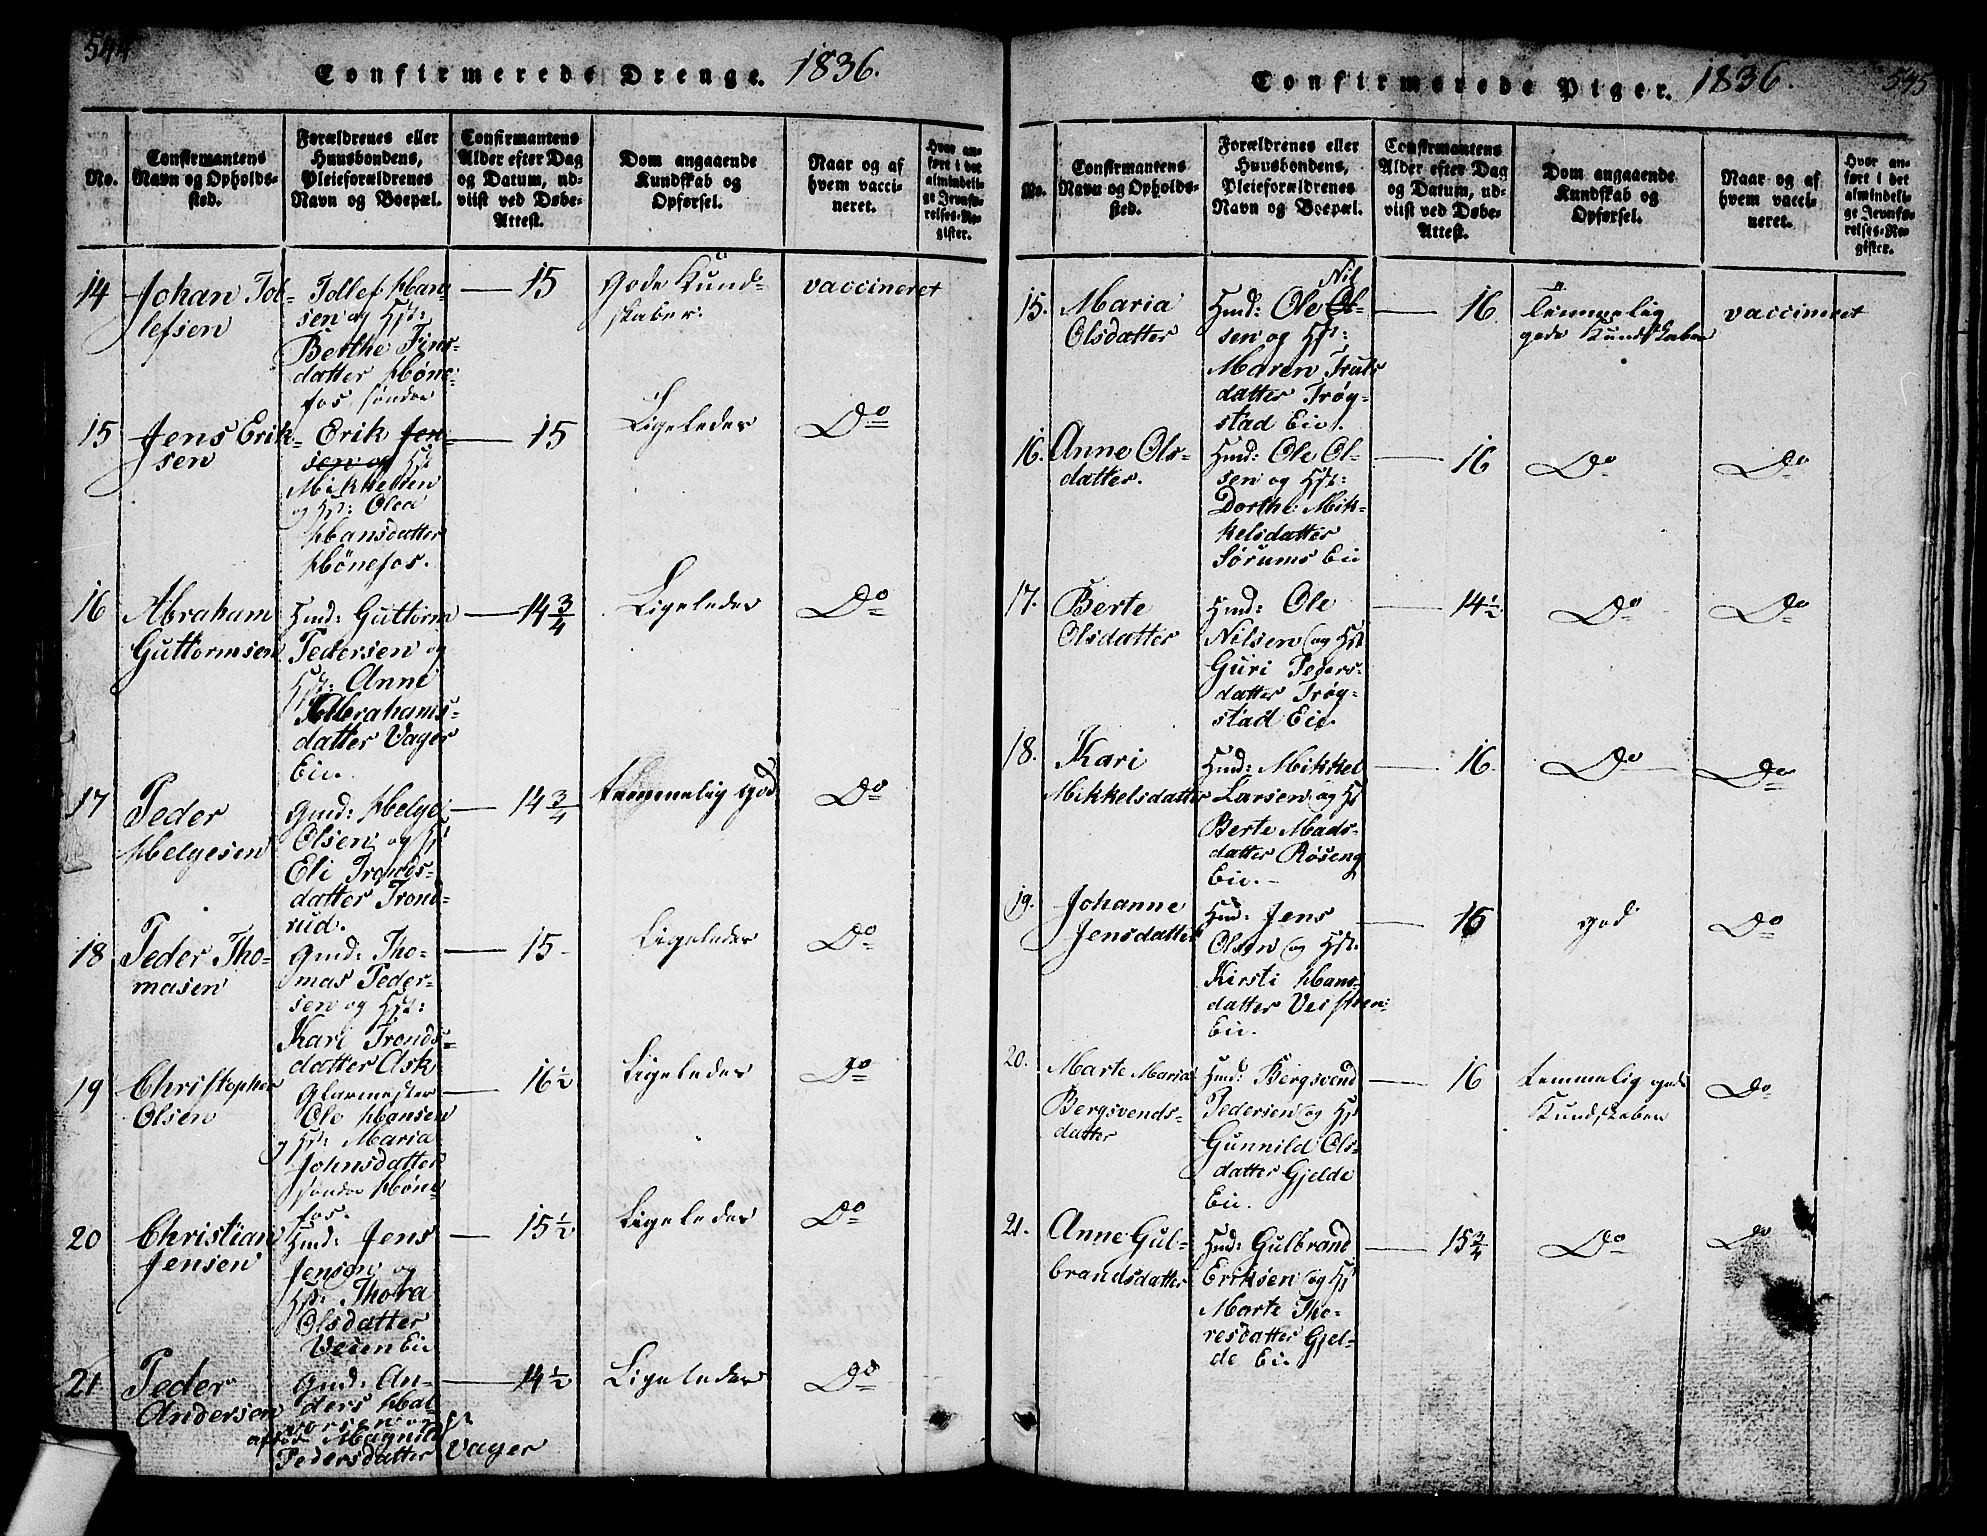 544
Confirmerede Drenge. 1836.
No.
Confirmantens
Navn og Opholds-
sted.
Forældrenes eller
Huusbondens,
Pleieforældrenes
Navn og Boepæl.
Confirmantens
Alder efter Dag
og Datum, ud-
viist ved Døbe-
Attest.
Dom angaaende
Kundskab og
Opførsel.
Naar og af
hvem vacci-
neret.
Hvor an-
ført i det
almindeli-
ge Jevnfø-
relses-Re-
gister.
14
Johan Tol-
lefsen
Tollef Han-
sen og Hst:
Berthe Fins-
datter Høne-
fos søndre
15
gode Kund-
skaber.
vaccineret
15
Jens Erik-
sen
Erik Jen-
sen og Hst
Mikkelsen
og Hst: Olea
Hansdatter
Hønefos.
15
Ligeledes
Do
16
Abraham
Guttormsen
Hmd: Guttorm
Pedersen og
Hst: Anne
Abrahams-
datter Vager
Eie.
14 3/4
Ligeledes
Do
17
Peder
Helgesen
Gmd: Helge
Olsen og Hst
Eli Tronds-
datter Trond-
rud.
14 3/4
temmelig god
Do
18
Peder Tho-
masen
Gmd: Tho-
mas Peder-
sen og Hst:
Kari Tronds-
datter Ask
15
Ligeledes
Do
19
Christopher
Olsen
Glarmester
Ole Hansen
og Hst: Maria
Johnsdatter
søndre Høne-
fos.
16 1/2
Ligeledes
Do
20
Christian
Jensen
Hmd: Jens
Jensen og
Hst: Thora
Olsdatter
Veien Eie
15 1/2
Ligeledes
Do
21
Peder
Andersen
Gmd: An-
ders Hal-
vorsen og Hst
Magnild
Pedersdatter Vager
14 1/2
Ligeledes
Do
Confirmerede Piger. 1836.
545
No.
Confirmantens
Navn og Opholds-
sted.
Forældrenes eller
Huusbondens,
Pleieforældrenes
Navn og Boepæl.
Confirmantens
Alder efter Dag
og Datum, ud-
viist ved Døbe-
Attest.
Dom angaaende
Kundskab og
Opførsel.
Naar og af
hvem vacci-
neret.
Hvor an-
ført i det
almindeli-
ge Jevnfø-
relses-Re-
gister.
15.
Maria
Olsdatter
Nil
Hmd: Ole Ol-
sen og Hst:
Maren Truls
datter Trøg-
stad Eie.
16
temmelig
gode Kundskaber
vaccineret
16.
Anne Ols-
datter.
Hmd: Ole Ol-
sen og Hst:
Dorthe Mik-
kelsdatter
Sørums Eie
16
Do
Do
17.
Berte
Olsdatter
Hmd: Ole
Nilsen og Hst
Guri Peders-
datter Trøg-
stad Eie.
14 1/2
Do
Do
18.
Kari
Mikkelsdatter
Hmd: Mikkel
Larsen og Hst
Berte Mads-
datter Røseng
Eie.
16
Do
Do
19.
Johanne
Jensdatter
Hmd: Jens
Olsen og Hst.
Kirsti Hans-
datter
Eie.
god
Do
20.
Marte Maria
Bergsvends-
datter
Hmd: Bergsvend
Pedersen og Hst
Gunnild Ols-
datter Gjelde
Eie.
16
temmelig gode
Kundskaber
Do
21.
Anne Gul-
brandsdatter
Hmd: Gulbrand
Eriksen og Hst
Marte Tho-
resdatter Gjel-
de Eie
15 3/4
Do
Do